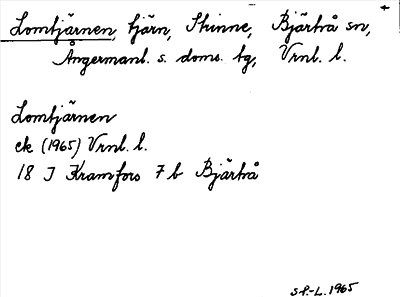 Lomtjärnen, tjärn, Skinne, Bjärtrå sn,
Ångermanl. s. doms. tg, Vrnl. l.
Lomtjärnen
ek (1965) Vrnl. l.
18 J Kramfors 7 b Bjärtrå
S.P.-L. 1965